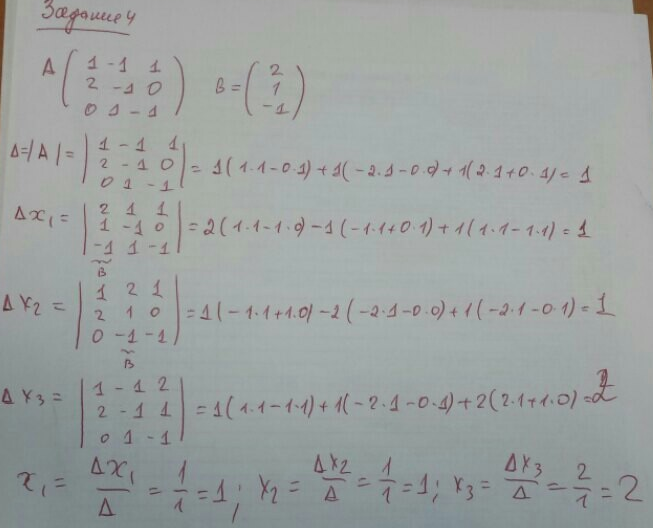 Задание 4
A ( 1 -1 1
2 -1 0
0 1 -1 ) B = ( 2
1
-1 )
Δ=|A|= | 1 -1 1
2 -1 0
0 1 -1 | = 1(1·1-0·1)+1(-2·1-0·0)+1(2·1+0·1)=1
Δx₁ = | 2 1 1
1 -1 0
-1 1 -1 | = 2(1·1-1·0)-1(-1·1+0·1)+1(1·1-1·1)=1
B
Δx₂ = | 1 2 1
2 1 0
0 -1 -1 | = 1(-1·1+1·0)-2(-2·1-0·0)+1(-2·1-0·1)=1
B
Δx₃ = | 1 -1 2
2 -1 1
0 1 -1 | = 1(1·1-1·1)+1(-2·1-0·1)+2(2·1+1·0)=2
x₁ = Δx₁/Δ = 1/1 = 1; x₂ = Δx₂/Δ = 1/1 = 1; x₃ = Δx₃/Δ = 2/1 = 2